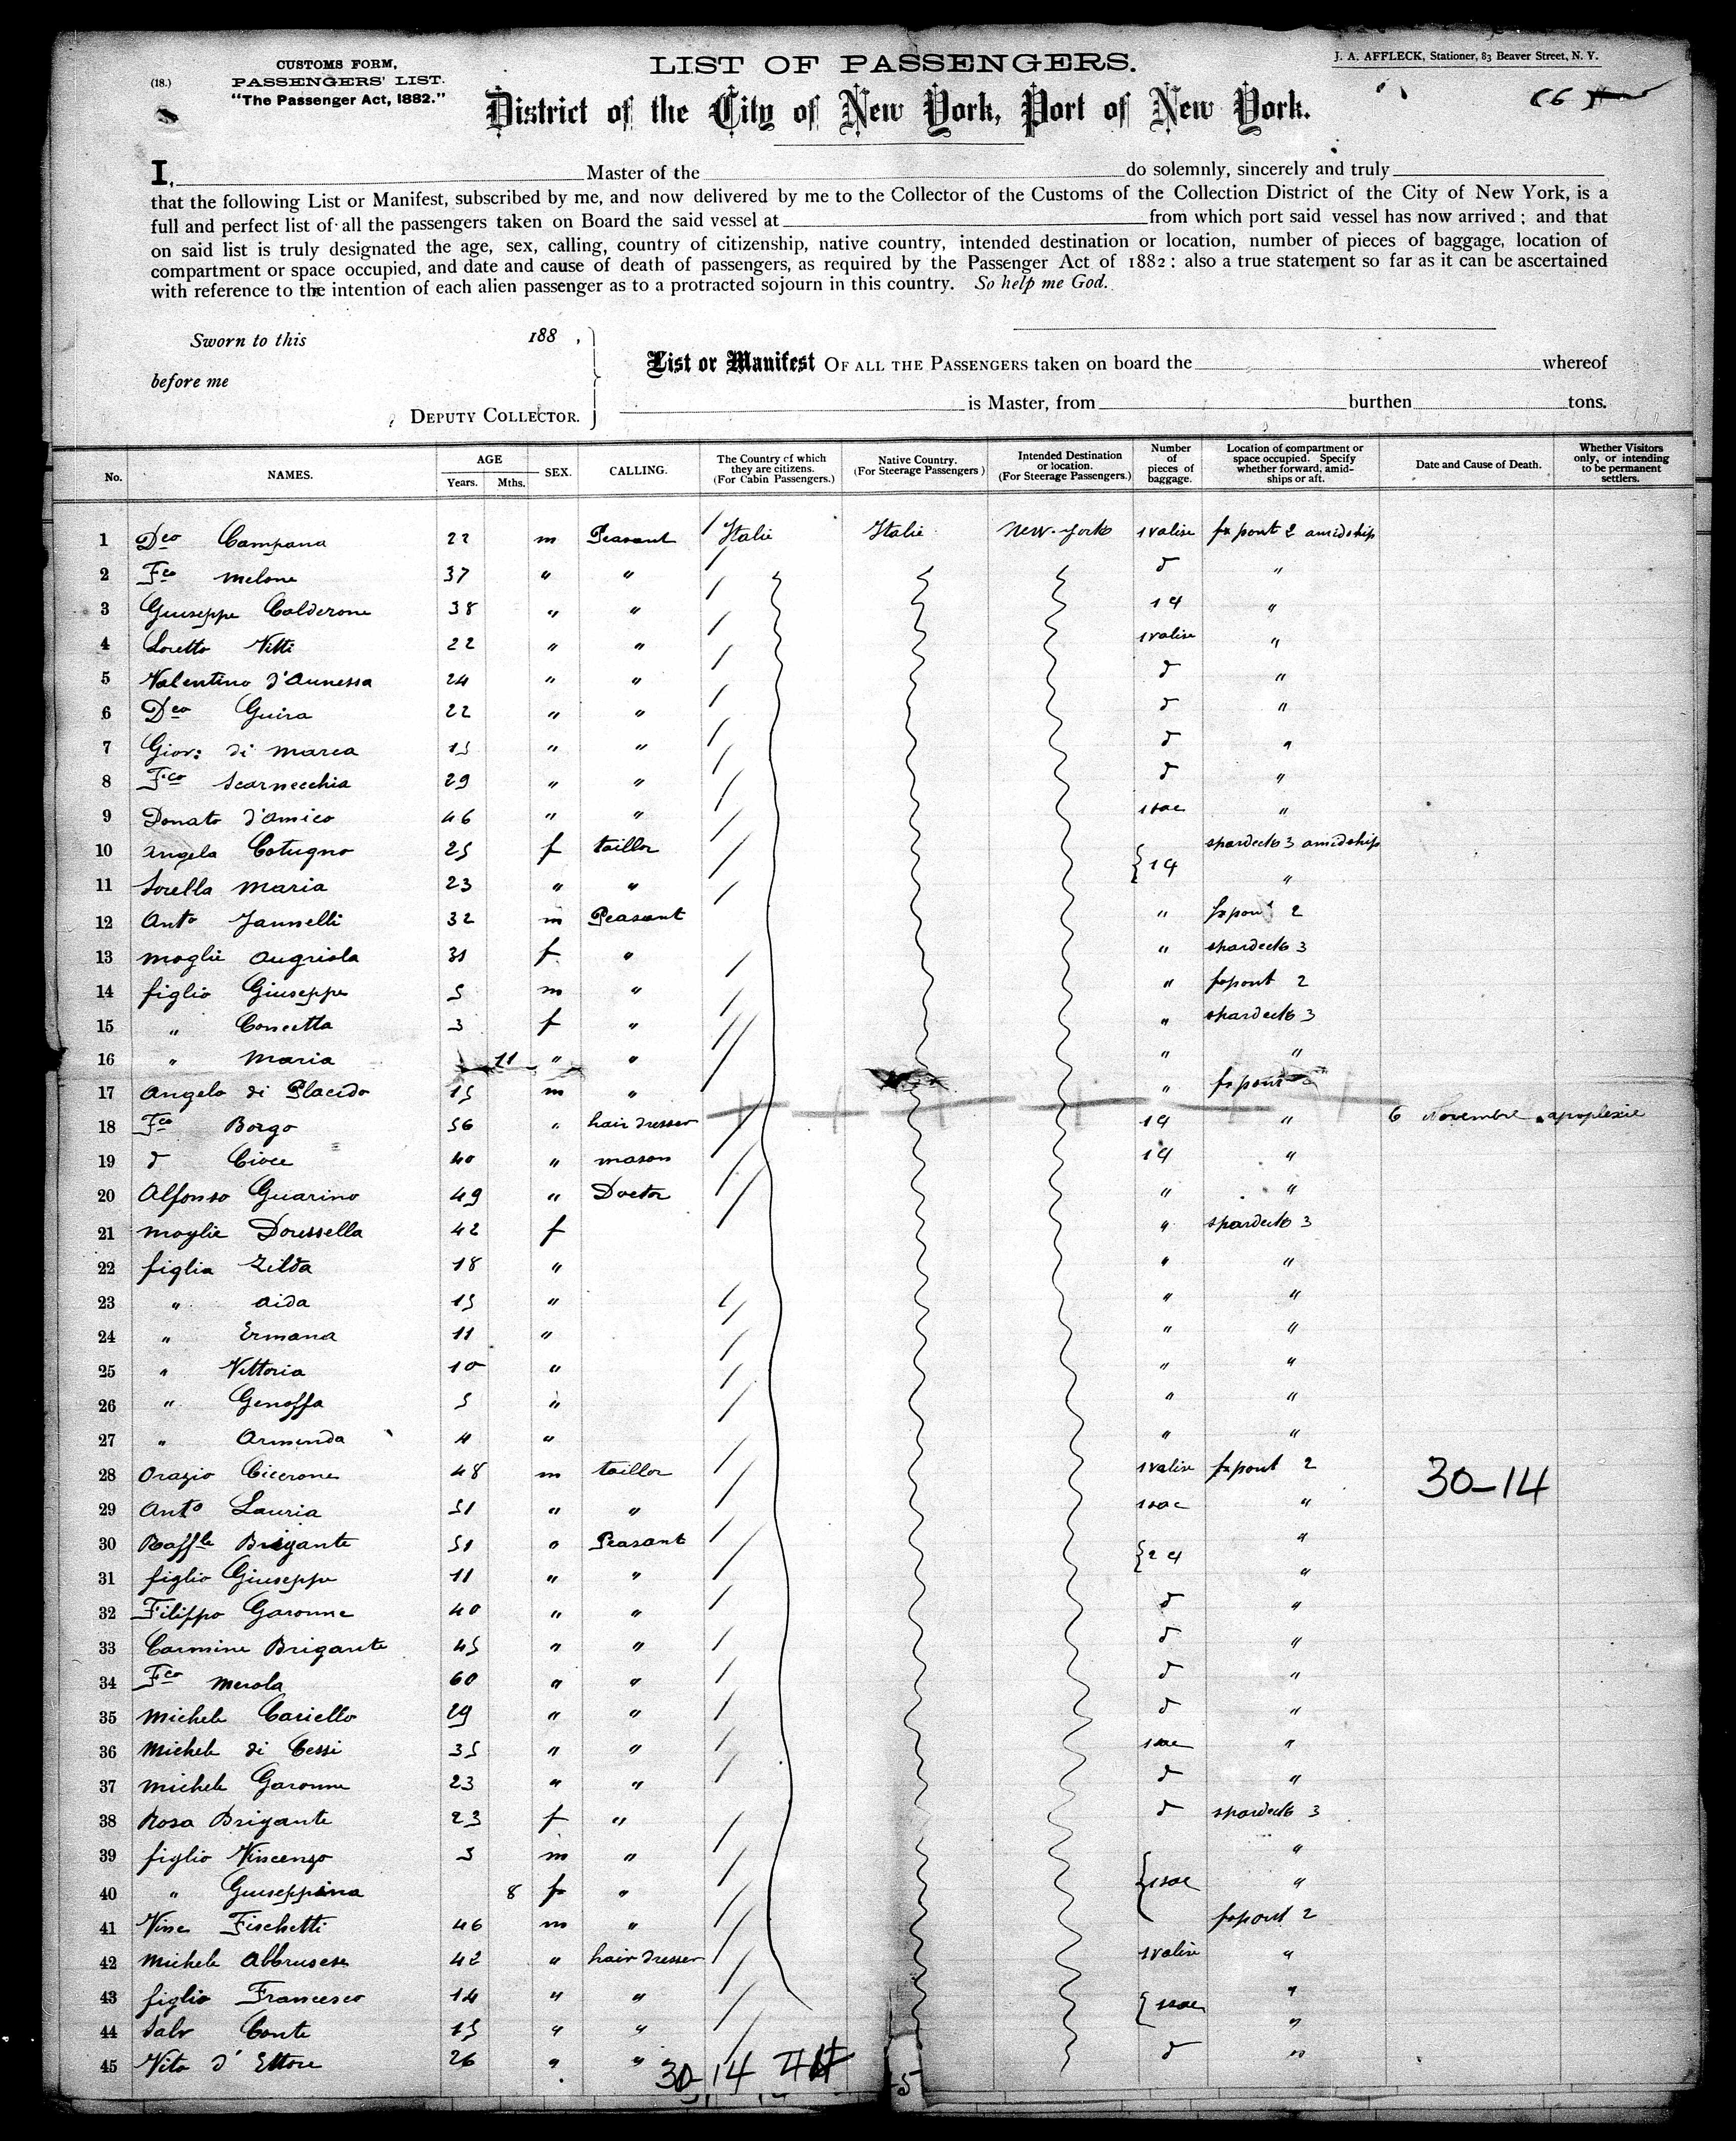 (18.)
CUSTOMS FORM,
PASSENGERS' LIST.
"The Passenger Act, 1882."
LIST OF PASSENGERS.
J. A. AFFLECK, Stationer, 83 Beaver Street, N. Y.
District of the City of New York, Port of New York.
I, Master of the do solemnly, sincerely and truly
that the following List or Manifest, subscribed by me, and now delivered by me to the Collector of the Customs of the Collection District of the City of New York, is a
full and perfect list of all the passengers taken on Board the said vessel at from which port said vessel has now arrived; and that
on said list is truly designated the age, sex, calling, country of citizenship, native country, intended destination or location, number of pieces of baggage, location of
compartment or space occupied, and date and cause of death of passengers, as required by the Passenger Act of 1882: also a true statement so far as it can be ascertained
with reference to the intention of each alien passenger as to a protracted sojourn in this country. So help me God.
Sworn to this 188 ,
before me
DEPUTY COLLECTOR.
List or Manifest OF ALL THE PASSENGERS taken on board the whereof
is Master, from burthen tons.
No. NAMES. AGE Years. Mths. SEX. CALLING. The Country of which they are citizens. (For Cabin Passengers.) Native Country. (For Steerage Passengers) Intended Destination or location. (For Steerage Passengers.) Number of pieces of baggage. Location of compartment or space occupied. Specify whether forward, amidships or aft. Date and Cause of Death. Whether Visitors only, or intending to be permanent settlers.
1 Dco Campana 22 m Peasant Italie Italie New-York 1 valise fxpont 2 amidship
2 Fco Melone 37 " " d "
3 Giuseppe Calderone 38 " " 1 "
4 Loretto Nitti 22 " " 1 valise "
5 Valentino d'Aunessa 24 " " d "
6 Dco Guira 22 " " d "
7 Giov: di Marca 15 " " d "
8 Fco Scarnecchia 29 " " d "
9 Donato d'Amico 46 " " 1 sac "
10 Angela Cotugno 25 f taillor 1 spardeck 3 amidship
11 Sorella Maria 23 " " "
12 Anto Jannelli 32 m Peasant " fxpont 2
13 moglie Augriola 31 f " " spardeck 3
14 figlio Giuseppe 5 m " " fxpont 2
15 " Concetta 3 f " " spardeck 3
16 " Maria 11 " " " "
17 Angelo di Placido 15 m " " fxpont
18 Fco Borgo 56 " hair dresser 1 " 6 Novembre apoplexie
19 d Cioce 40 " mason 1 "
20 Alfonso Guarino 49 " Doctor " "
21 moglie Doressella 42 f " spardeck 3
22 figlia Zilda 18 " " "
23 " Aida 15 " " "
24 " Ermana 11 " " "
25 " Vittoria 10 " " "
26 " Genoffa 5 " " "
27 " Armenda 4 " " "
28 Orazio Cicerone 48 m taillor 1 valise fxpont 2
30-14
29 Anto Lauria 51 " " 1 sac "
30 Raffle Brigante 51 " Peasant 2 "
31 figlio Giuseppe 11 " " "
32 Filippo Garonne 40 " " d "
33 Carmine Brigante 45 " " d "
34 Fco Merola 60 " " d "
35 Michele Cariello 29 " " d "
36 Michele di Cessi 35 " " 1 sac "
37 Michele Garonne 23 " " d "
38 Rosa Brigante 23 f " d spardeck 3
39 figlio Vincenzo 3 m " "
40 " Giuseppina 8 f " 1 sac "
41 Vinc Fischetti 46 m " fxpont 2
42 Michele Abbrusese 42 " hair dresser 1 valise "
43 figlio Francesco 14 " " 1 sac "
44 Salv Conte 15 " " "
45 Vito d'Ettore 26 " " d "
30-14